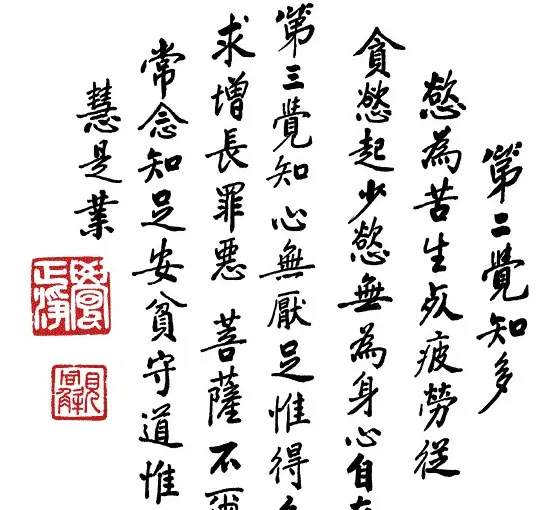 第二覺知多
慾為苦生死疲勞從
貪慾起少慾無為身心自在
第三覺知心無厭足惟得
求增長罪惡菩薩不爾
常念知足安貧守道惟
慧是業